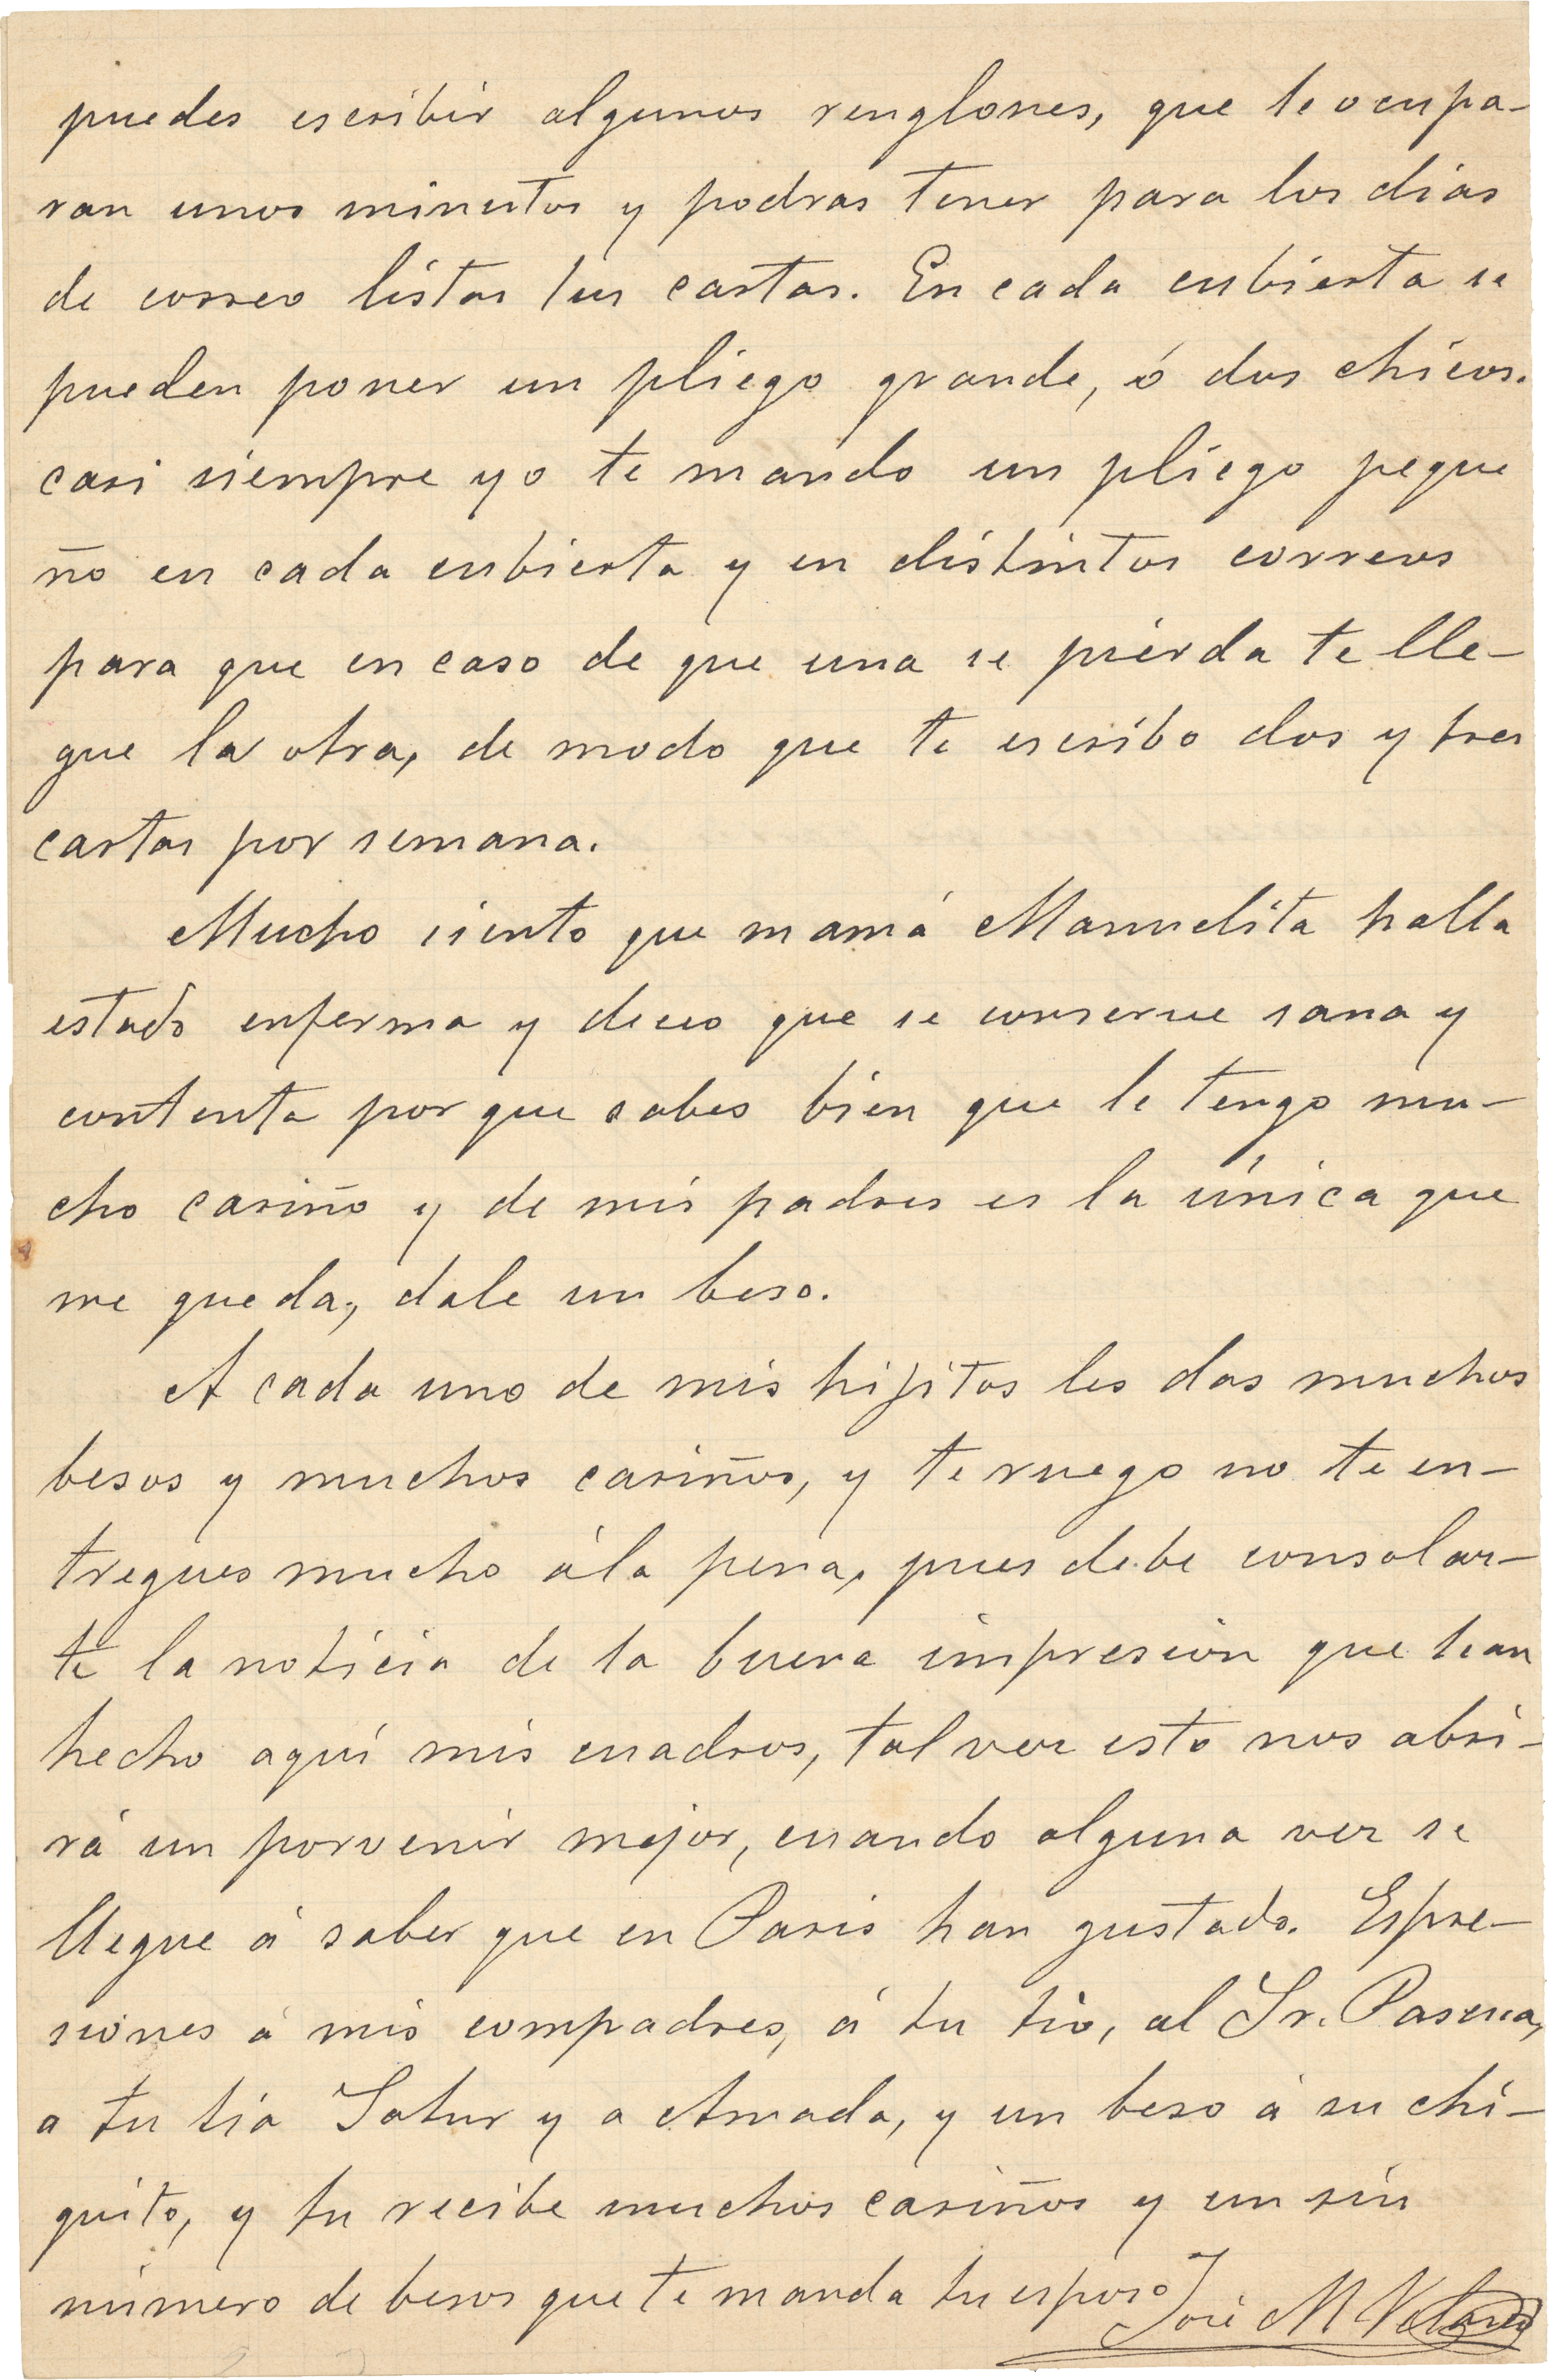 puedes escribir algunos renglones, que te ocupa-
ran unos minutos y podras tener para los dias
de correo listas tus cartas. En cada cubierta se
pueden poner un pliego grande, ó dos chicos.
casi siempre yo te mando un pliego peque
ño en cada cubierta y en distintos correos
para que en caso de que una se pierda te lle-
gue la otra, de modo que te escribo dos y tres
cartas por semana.
Mucho siento que mamá Manuelita halla
estado enferma y deceo que se conserve sana y
contenta por que sabes bien que le tengo mu-
cho cariño y de mis padres es la única que
me queda, dale un beso.
A cada uno de mis hijitos les das muchos
besos y muchos cariños, y te ruego no te en-
tregues mucho á la pena, pues debe consolar-
te la noticia de la buena impresion que han
hecho aquí mis cuadros, tal vez esto nos abri-
rá un porvenir mejor, cuando alguna vez se
llegue á saber que en Paris han gustado. Espre-
siones á mis compadres, á tu tio, al Sr. Pascua,
a tu tia Satur y a Amada, y un beso á su chi-
quito, y tu recibe muchos cariños y un sin
número de besos que te manda tu esposo
José M Velasco